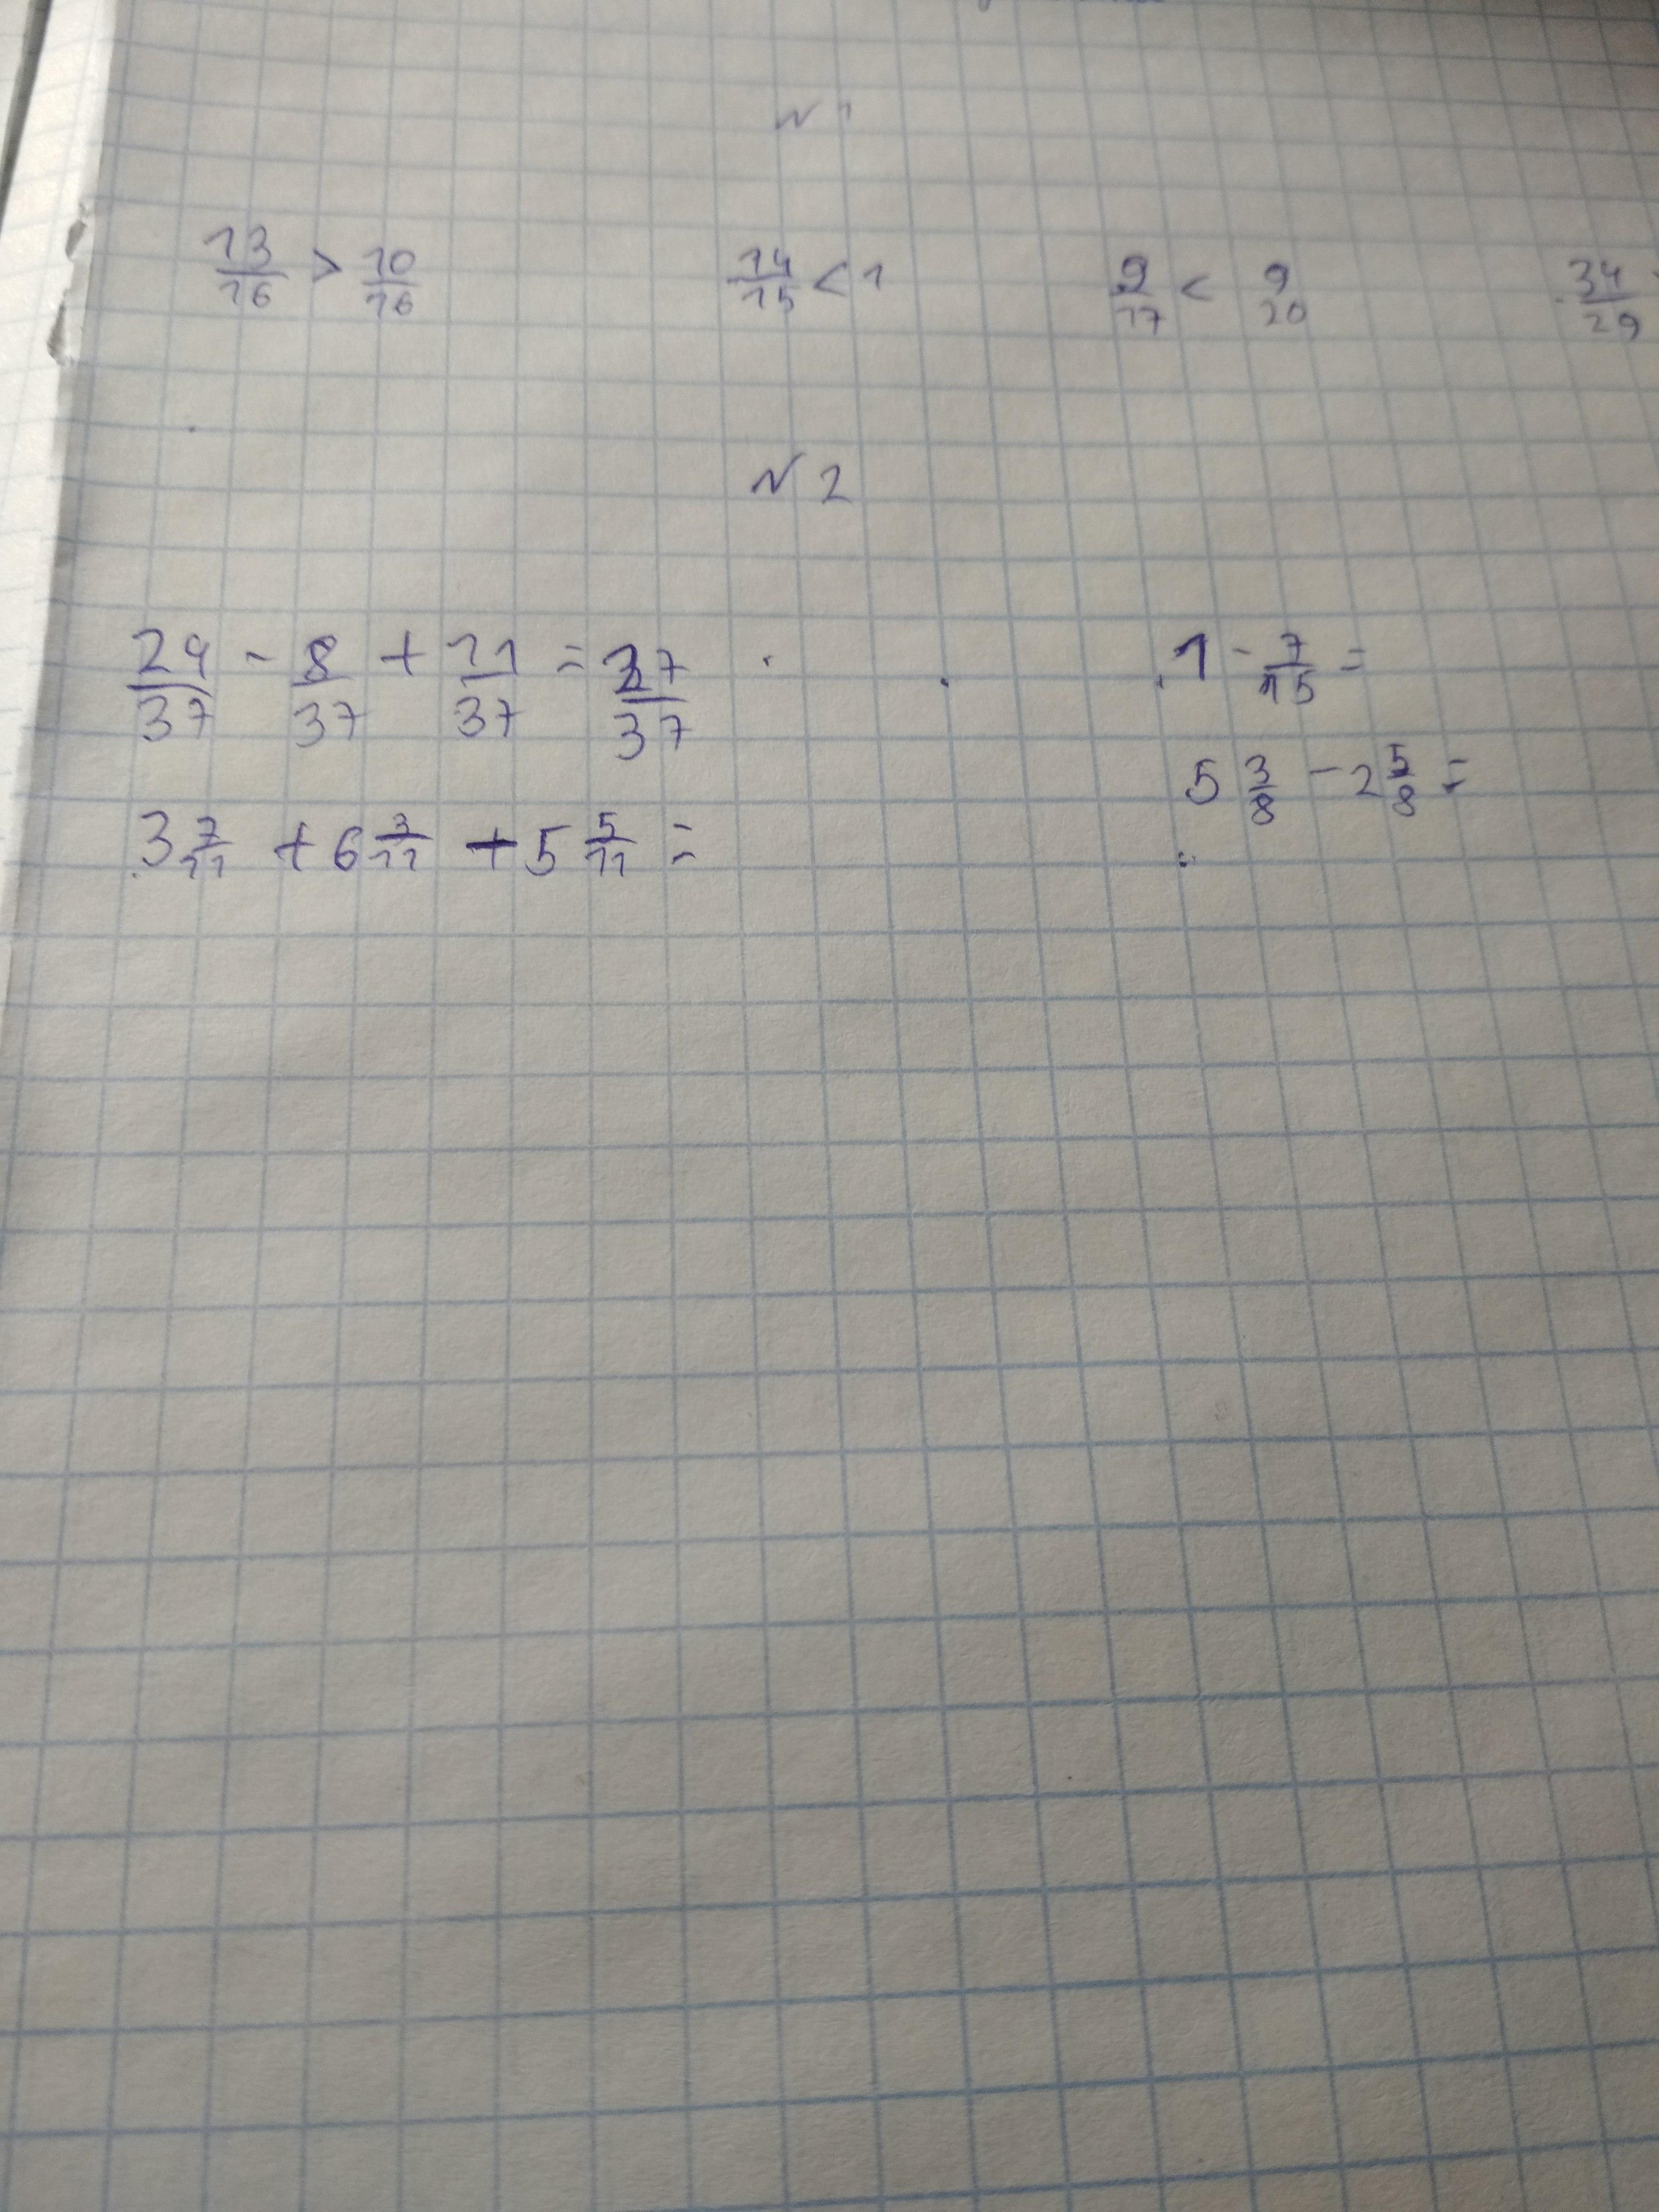 N 1
13/16 > 10/16 14/15 < 1 9/17 < 9/20 34/29
N 2
24/37 - 8/37 + 11/37 = 27/37 1 - 7/15 =
3 7/11 + 6 3/11 + 5 5/11 = 5 3/8 - 2 5/8 =